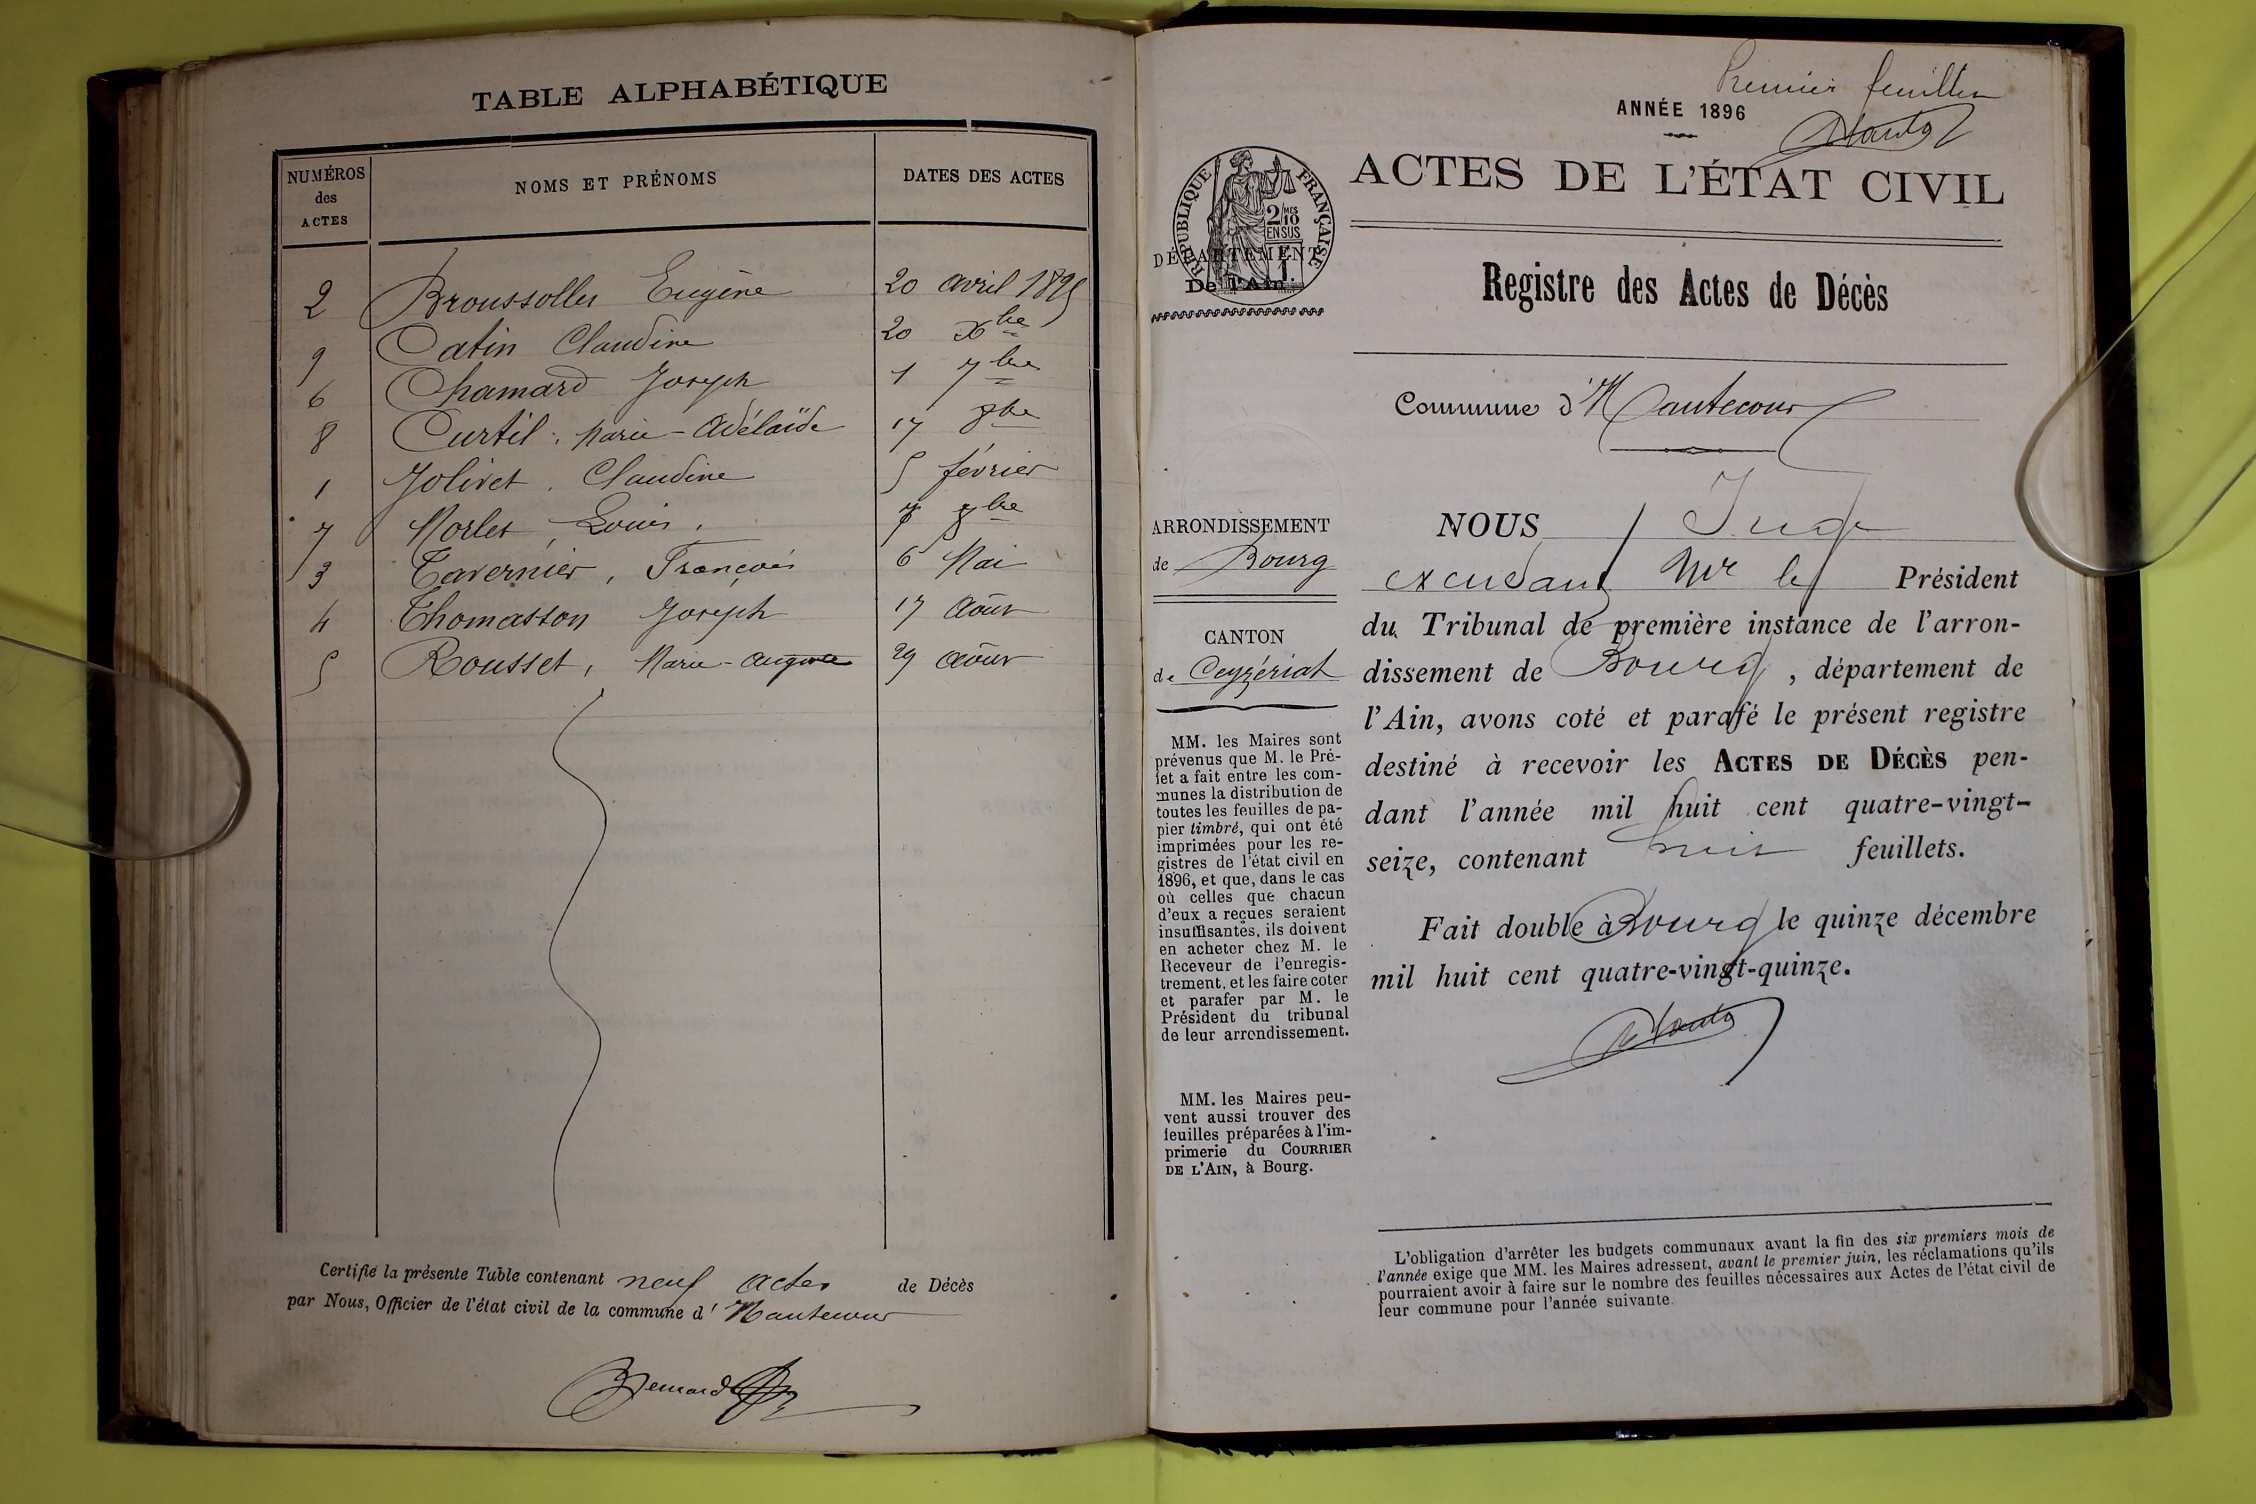 TABLE ALPHABÉTIQUE
NUMÉROS des ACTES NOMS ET PRÉNOMS DATES DES ACTES
2 Broussolles Eugène 20 avril 1895
9 Catin Claudine 20 Xbre
6 Chamard Joseph 1 7bre
8 Curtil, Marie-Adélaïde 17 8bre
1 Jolivet, Claudine 5 février
7 Morlet, Louis, 7 8bre
3 Tavernier, François 6 Mai
4 Thomasson Joseph 17 Août
5 Rousset, Marie- 29 Août
Certifié la présente Table contenant neuf actes de Décès
par Nous, Officier de l'état civil de la commune d' Hautecour
Bernard
Premier feuillet
ANNÉE 1896
ACTES DE L'ÉTAT CIVIL
RÉPUBLIQUE FRANÇAISE
2/10 MES
EN SUS
DÉPARTEMENT
De l'Ain
Registre des Actes de Décès
Commune d'Hautecour
ARRONDISSEMENT
de Bourg
CANTON
de Ceyzériat
MM. les Maires sont
prévenus que M. le Pré-
fet a fait entre les com-
munes la distribution de
toutes les feuilles de pa-
pier timbré, qui ont été
imprimées pour les re-
gistres de l'état civil en
1896, et que, dans le cas
où celles que chacun
d'eux a reçues seraient
insuffisantes, ils doivent
en acheter chez M. le
Receveur de l'enregis-
trement, et les faire coter
et parafer par M. le
Président du tribunal
de leur arrondissement.
MM. les Maires peu-
vent aussi trouver des
feuilles préparées à l'im-
primerie du COURRIER
DE L'AIN, à Bourg.
NOUS Juge
Mr le Président
du Tribunal de première instance de l'arron-
dissement de Bourg, département de
l'Ain, avons coté et parafé le présent registre
destiné à recevoir les ACTES DE DÉCÈS pen-
dant l'année mil huit cent quatre-vingt-
seize, contenant huit feuillets.
Fait double à Bourg le quinze décembre
mil huit cent quatre-vingt-quinze.
L'obligation d'arrêter les budgets communaux avant la fin des six premiers mois de
l'année exige que MM. les Maires adressent, avant le premier juin, les réclamations qu'ils
pourraient avoir à faire sur le nombre des feuilles nécessaires aux Actes de l'état civil de
leur commune pour l'année suivante.